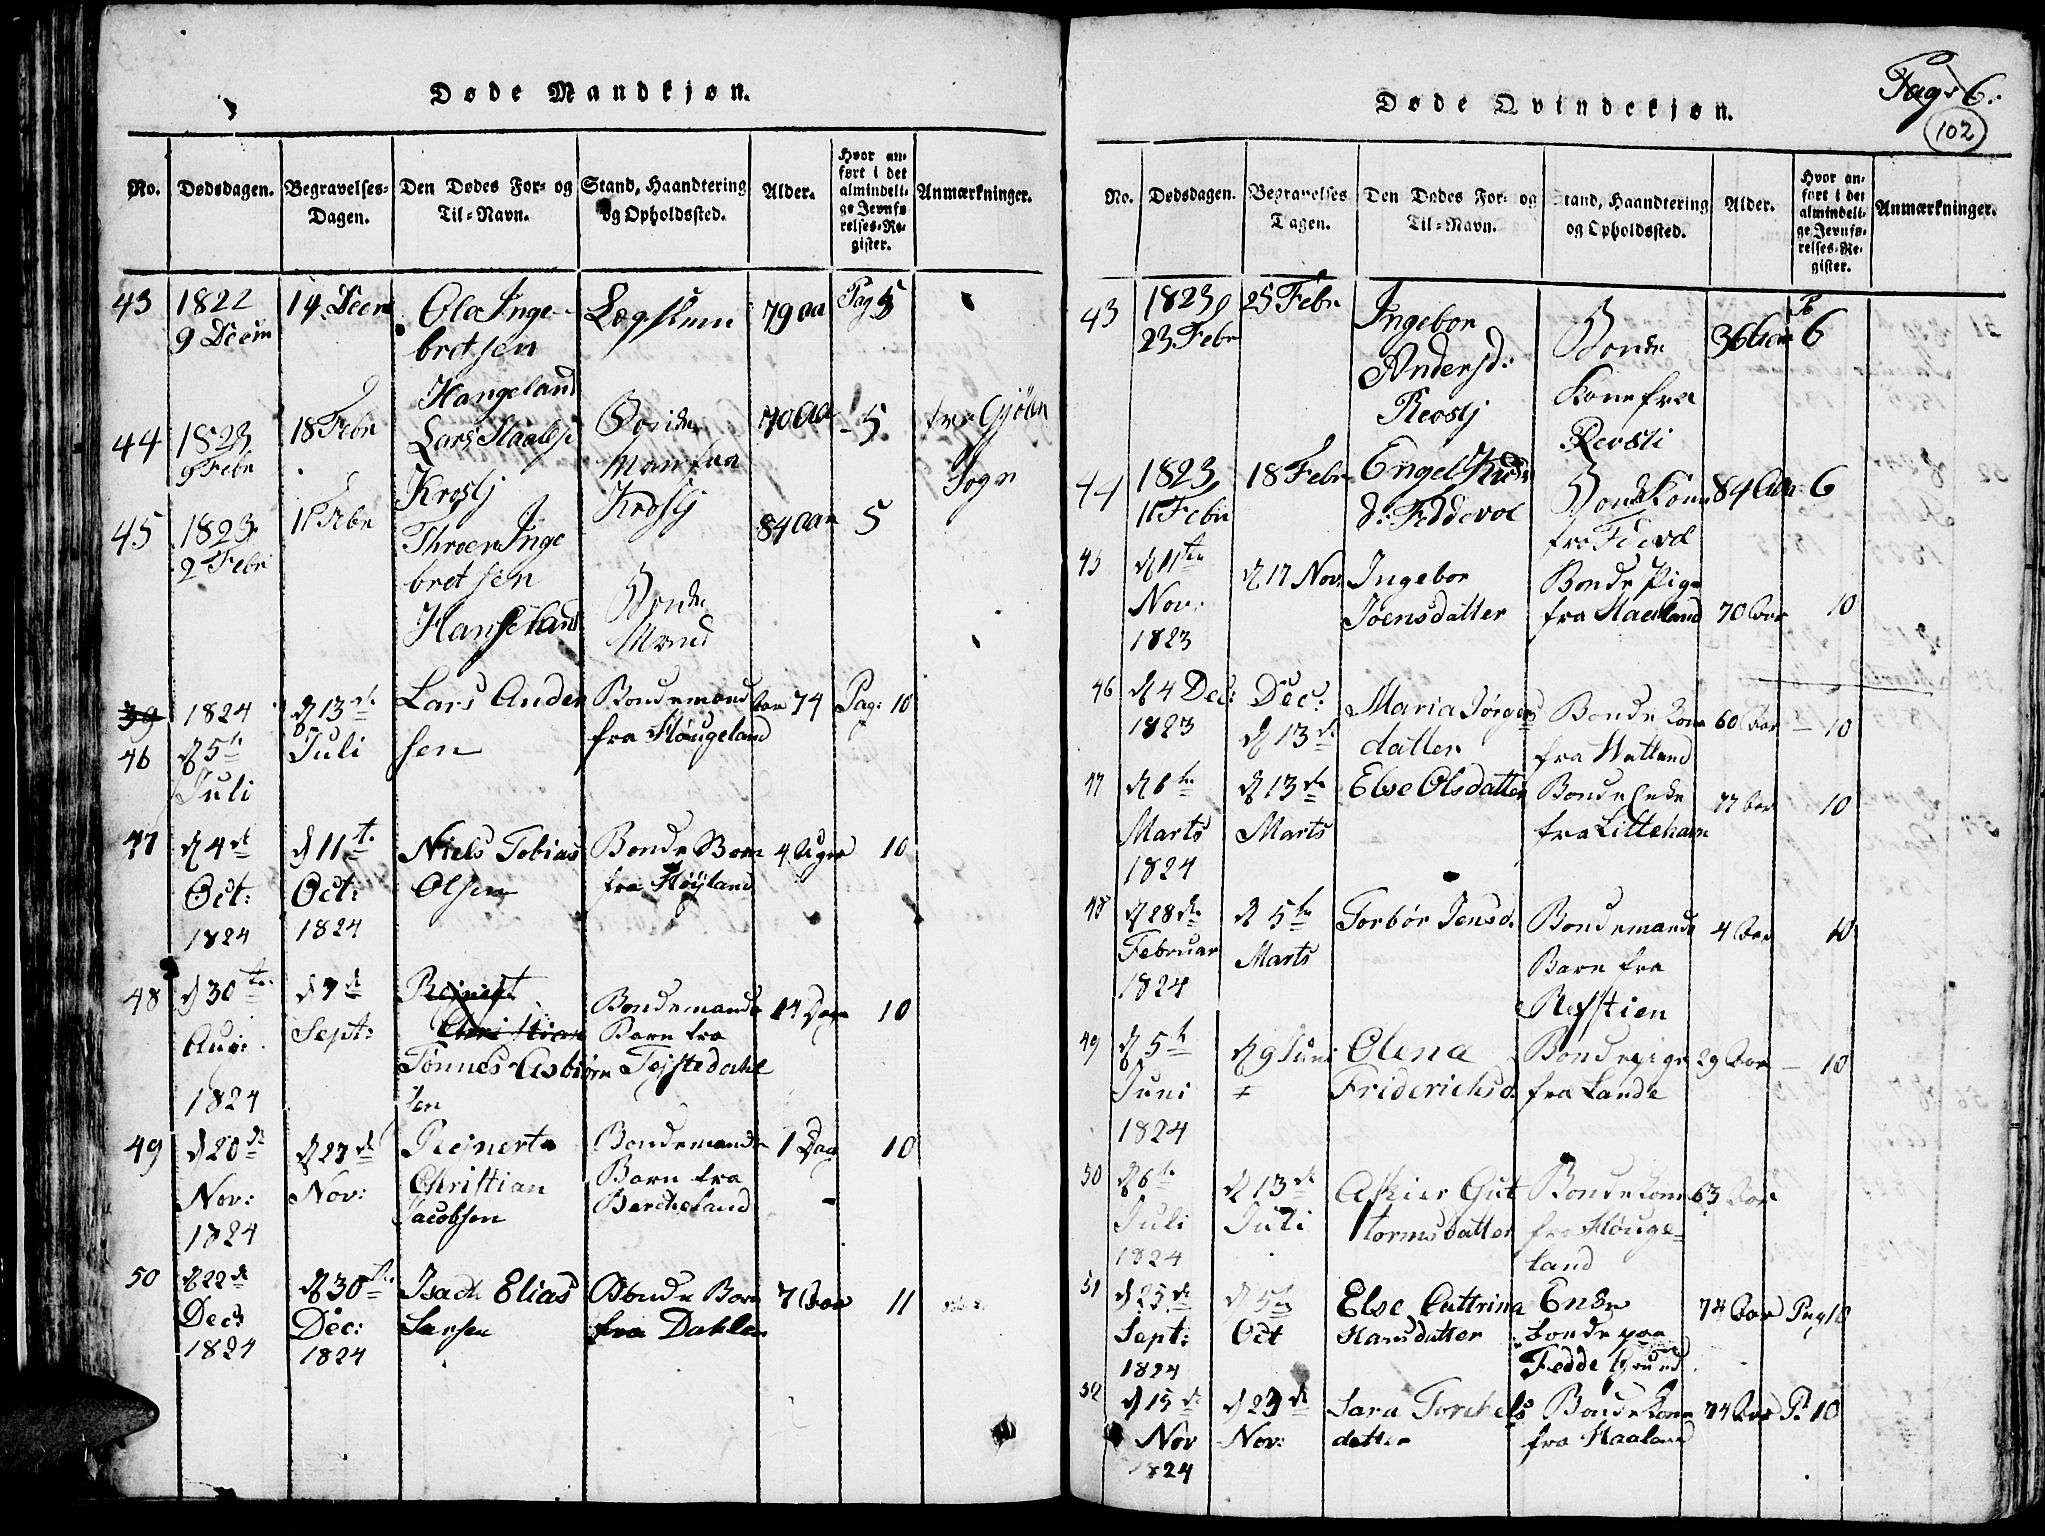 Døde Mandkjøn.
No.
Dødsdagen.
Begravelses-
Dagen.
Den Dødes For- og
Til-Navn.
Stand, Haandtering
og Opholdssted.
Alder.
Hvor an-
ført i det
almindeli-
ge Jevnfø-
relses-Re-
gister.
Anmærkninger.
43
1822
9 Decm
14 Decm
Ola Inge-
bretsen
Hangeland
79 aa
Pag 5
44
1823
9 Febr
18 Febr
Lars
Krosly
Man fra
Krosly
70 Aa
5
Sogn
45
1823
2 Febr
11 Febr
Inge
bretsen
Bonde
Mand
84 Aar
5
39
46
1824
d 5te
Juli
d 13de
Juli
Lars Ander
sen
Bondemand
fra Høugeland
Aar 74
Pag: 10
47
d 4de
Oct:
1824
d 11te
Oct:
1824
Niels Tobias
Olsen
Bonde Barn
fra Høyland
4 Uger
10
48
d 30te
Aug:
1824
d 7de
Sept:
Christian
Tønnes Asbiørn
sen
Bondemands
Barn fra
Tejstedahl
14 Dage
10
49
d 20de
Nov:
1824
d 27de
Nov:
Reinert
Christian
Jacobsen
Bondemands
Barn fra
Bercheland
1 Dag
10
50
d 22de
Dec:
1824
d 30te
Dec:
1824
Isach Elias
Larsen
Bonde Barn
fra Dahlen
7 Aar
11
Døde Qvindekjøn.
Pag: 6.
102
No.
Dødsdagen.
Begravelses
Dagen.
Den Dødes For- og
Til-Navn.
Stand, Haandtering
og Opholdssted.
Alder.
Hvor an-
ført i det
almindeli-
ge Jevnfø-
relses-Re-
gister.
Anmærkninger.
43
1823
23 Febr
25 Febr
Ingebor
Andersd:
Revsly
Bonde
Kone fra
Revsli
36 Aar
P
6
44
1823
11 Febr
18 Febr
Engel
d: Feddevol
Bonde Kone
84 Aar
6
45
d 11te
Nov:
1823
d 17 Nov.
Ingebor
Joensdatter
Bonde Pige
fra Haaland
70 Aar
10
46
d 4 Dec:
1823
Dec:
d 13de
Maria Jørgens
datter
Bonde Kone
fra Watland
60 Aar
10
47
d 6te
Marts
1824
d 13de
Marts
Else Olsdatter
Bonde Enke
fra Litleham
77 Aar
10
48
d 28de
Februar
1824
d 5te
Marts
Torbør Jensd.
Bondemands
Barn fra
Refstien
4 Aar
10
49
d 5te
Juni
1824
d 9 Juni
Olena
Friderichsd.
Bondepige
fra Lande
29 Aar
10
50
d 6te
Juli
1824
d 13de
Juli
Askier Gut
tormsdatter
Bonde Kone
fra Høuge-
land
63 Aar
51
d 25de
Sept:
1824
d 5te
Oct
Else Cattrina
Hansdatter
Enke
paa
Fedde Grund
74 Aar
Pag 10
52
d 15de
Nov
1824
d 23de
Nov:
Sara Torchels
datter
Bonde Kone
fra Haaland
74 Aar
P: 10